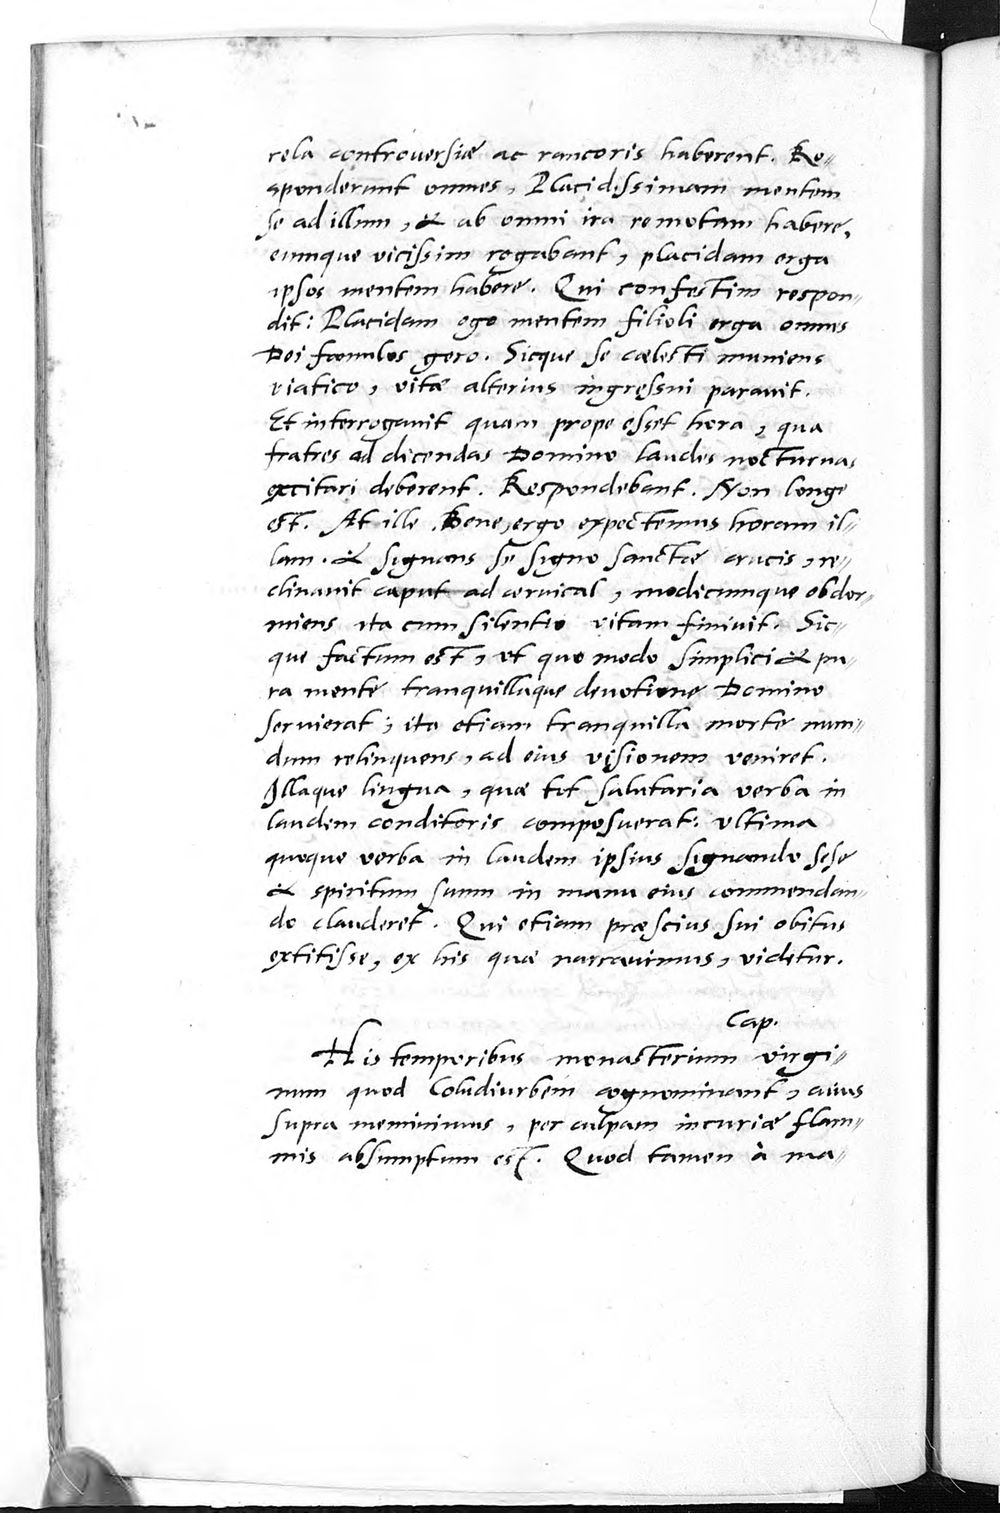 rela controuersiæ ac rancoris haberent. Re-
sponderunt omnes, Placidissimam mentem
se ad illum, & ab omni ira remotam habere,
eumque vicissim rogabant, placidam erga
ipsos mentem habere. Qui confestim respon-
dit: Placidam ego mentem filioli erga omnes
Dei famulos gero. Sicque se cælesti muniens
viatico, vitæ alterius ingressui parauit.
Et interrogauit quam prope esset hora, qua
fratres ad dicendas Domino laudes nocturnas
excitari deberent. Respondebant. Non longe
est. At ille. Bene, ergo expectemus horam il-
lam. & signans se signo sanctæ crucis, re-
clinauit caput ad ceruical, modicumque obdor-
miens ita cum silentio vitam finiuit. Sic-
que factum est, vt quo modo simplici & pu-
ra mente tranquillaque deuotione Domino
seruierat; ita etiam tranquilla morte mun-
dum relinquens, ad eius visionem veniret.
Illaque lingua, quæ tot salutaria verba in
laudem conditoris composuerat: vltima
quoque verba in laudem ipsius signando sese
& spiritum suum in manu eius commendan-
do clauderet. Qui etiam præscius sui obitus
extitisse, ex his quæ narrauimus, videtur.
Cap.
His temporibus monasterium virgi-
num quod Coludiurbem cognominant, cuius
supra meminimus, per culpam incuriæ flam-
mis absumptum est. Quod tamen à ma-